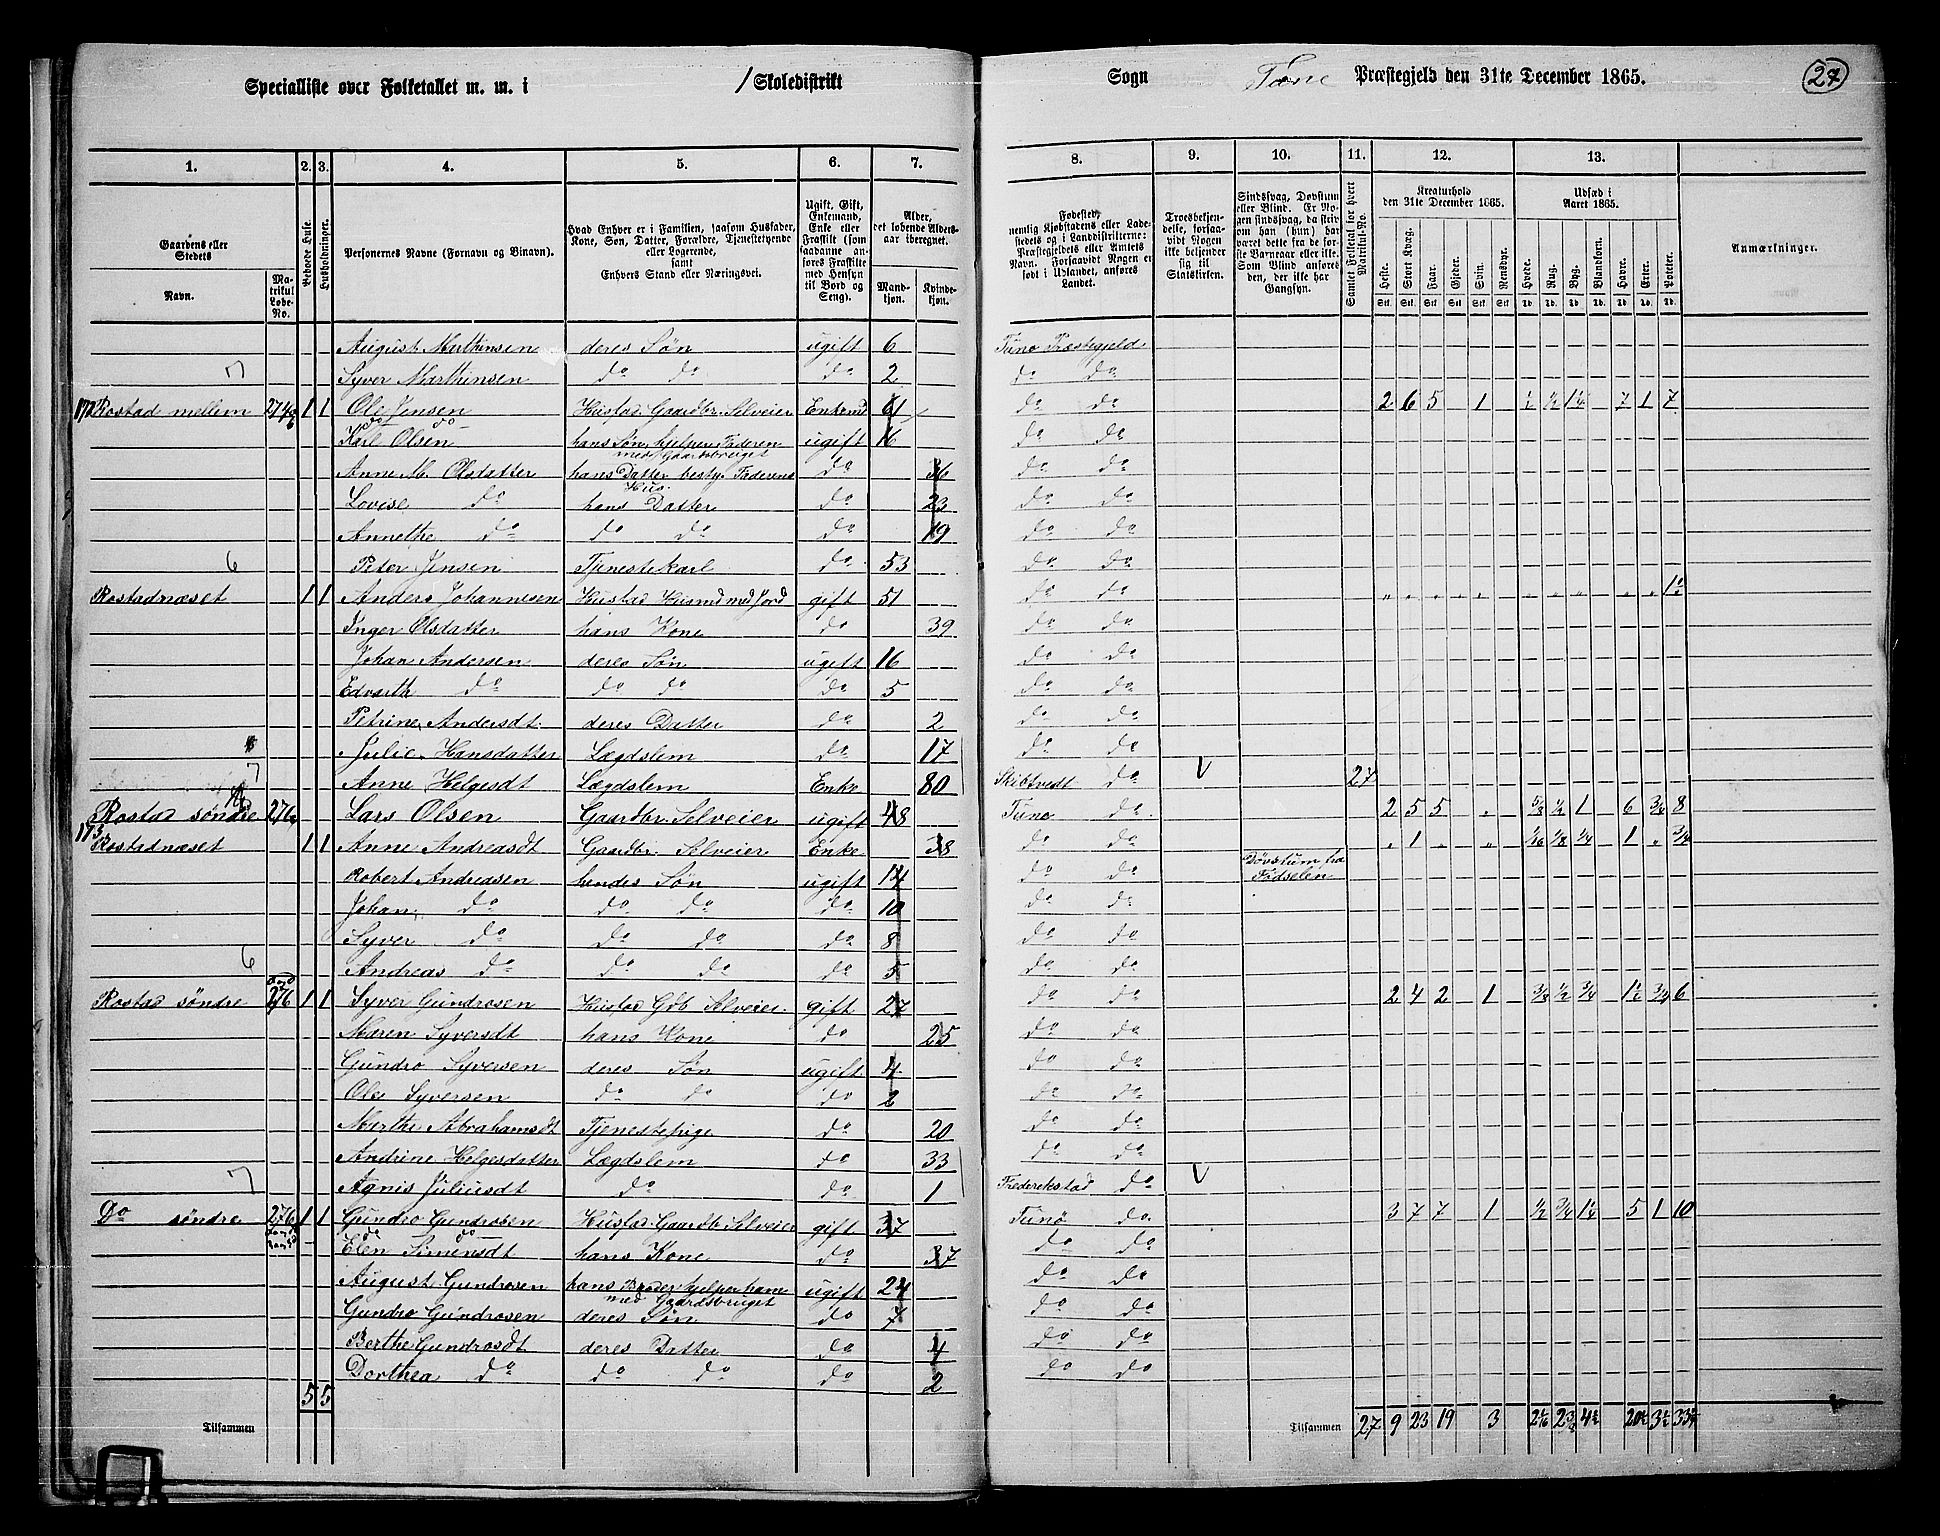 Specialliste over Folketallet m. m. i / Skoledistrikt Sogn Tune Præstegjeld den 31te December 1865. 27
1. 2. 3. 4. 5. 6. 7. 8. 9. 10. 11. 12. 13.
Gaardens eller Stedets
Navn.
Matrikul Løbe-No.
Beboede Huse.
Husholdninger.
Personernes Navne (Fornavn og Binavn).
Hvad Enhver er i Familien, saasom Husfader, Kone, Søn, Datter, Forældre, Tjenestetyende eller Logerende, samt Enhvers Stand eller Næringsvei.
Ugift, Gift, Enkemand, Enke eller Fraskilt (som saadanne anføres Fraskilte med Hensyn til Bord og Seng).
Alder, det løbende Alders-aar iberegnet.
Mandkjøn. Kvindekjøn.
Fødested, nemlig Kjøbstadens eller Ladestedets og i Landdistrikterne: Præstegjeldets eller Amtets Navn. Forsaavidt Nogen er født i Udlandet, anføres Landet.
Troesbekjendelse, forsaavidt Nogen ikke bekjender sig til Statskirken.
Sindssvag, Døvstum eller Blind. Er Nogen sindssvag, da skrives om han (hun) har været dette fra de første Barneaar eller ikke. Som Blind anføres den, der ikke har Gangsyn.
Samlet Folketal for hvert Matrikul-No.
Kreaturhold den 31te December 1865.
Heste. Stort Kvæg. Faar. Gjeder. Svin. Rensdyr.
Udsæd i Aaret 1865.
Hvede. Rug. Byg. Blandkorn. Havre. Erter. Poteter.
Anmærkninger.
August Marthinsen deres Søn ugift 6 Tune Præstegjeld
7 Syver Marthinsen do do do 2 do do
172 Rostad mellem 274 1 1 Ole Jensen Husfad. Gaardbr. Selveier Enkemd 61 do do 2 6 5 1 ½ ½ 1¼ 7 1 7
Karl Olsen hans Søn, hjelper Faderen med Gaardsbruget ugift 16 do do
Anne M. Olsdatter hans Datter besty. Faderens Hus do 36 do do
Lovise do hans Datter do 23 do do
Annethe do do do do 19 do do
6 Peter Jensen Tjenestekarl do 53 do do
Rostadnæset 1 1 Anders Johannesen Husfad Husmd med Jord gift 51 do do 1½
Inger Olsdatter hans Kone do 39 do do
Johan Andersen deres Søn ugift 16 do do
Edvarth do do do do 5 do do
Petrine Andersdt. deres Datter do 2 do do
Julie Hansdatter Lægdslem do 17 do do
7 Anne Helgesdt Lægdslem Enke 80 Skibtvedt do V 27
Rostad søndre 276 Lars Olsen Gaardbr. Selveier ugift 48 Tune do 2 5 5 5/8 ½ 1 6 ¾ 8
173 Rostadnæset 1 1 Anne Andreasdt Gaardbr. Selveier Enke 38 do do 1 1/16 1/8 1/4 1 3/4
Robert Andreasen hendes Søn ugift 14 do do Døvstum fra Fødselen
Johan do do do do 10 do do
Syver do do do do 8 do do
6 Andreas do do do do 5 do do
Rostad søndre 276 1 1 Syver Gundrosen Husfad Gdb Selveier gift 27 do do 2 4 2 1 3/8 ½ ¾ 1½ ¾ 6
Maren Syversdt hans Kone do 25 do do
Gundro Syversen deres Søn ugift 4 do do
Ole Syversen do do do 2 do do
Marthe Abrahamsdt Tjenestepige do 20 do do
Andrine Helgesdatter Lægdslem do 33 do do
7 Agnis Juliusdt do do 1 Frederikstad do V
Do søndre 276 1 1 Gundro Gundrosen Husfad. Gaardbr. Selveier gift 37 Tunø do 3 7 7 1 ½ ¾ 1¼ 5 1 10
Elen Simensdt hans Kone do 37 do do
August Gundrosen hans Broder hjelper ham med Gaardsbruget ugift 24 do do
Gundro Gundrosen deres Søn do 7 do do
Berthe Gundrosdt deres Datter do 4 do do
Dorthea do do do do 2 do do
5 5
Tilsammen Tilsammen 27 9 23 19 3